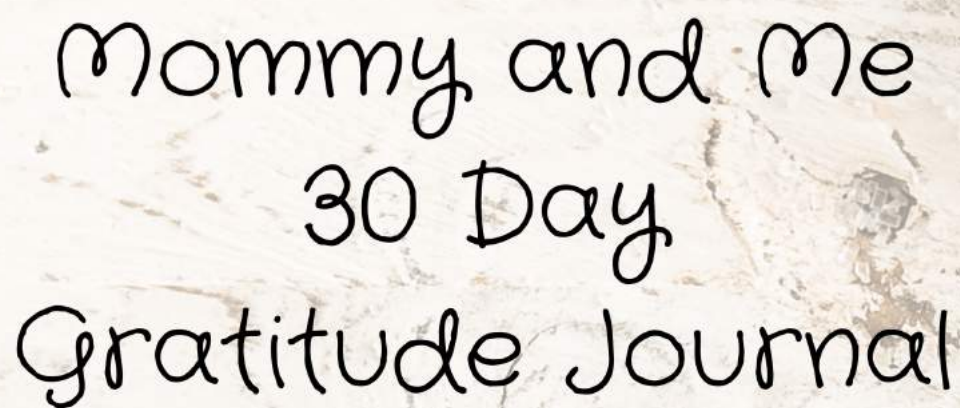 Mommy and Me
30 Day
Gratitude Journal